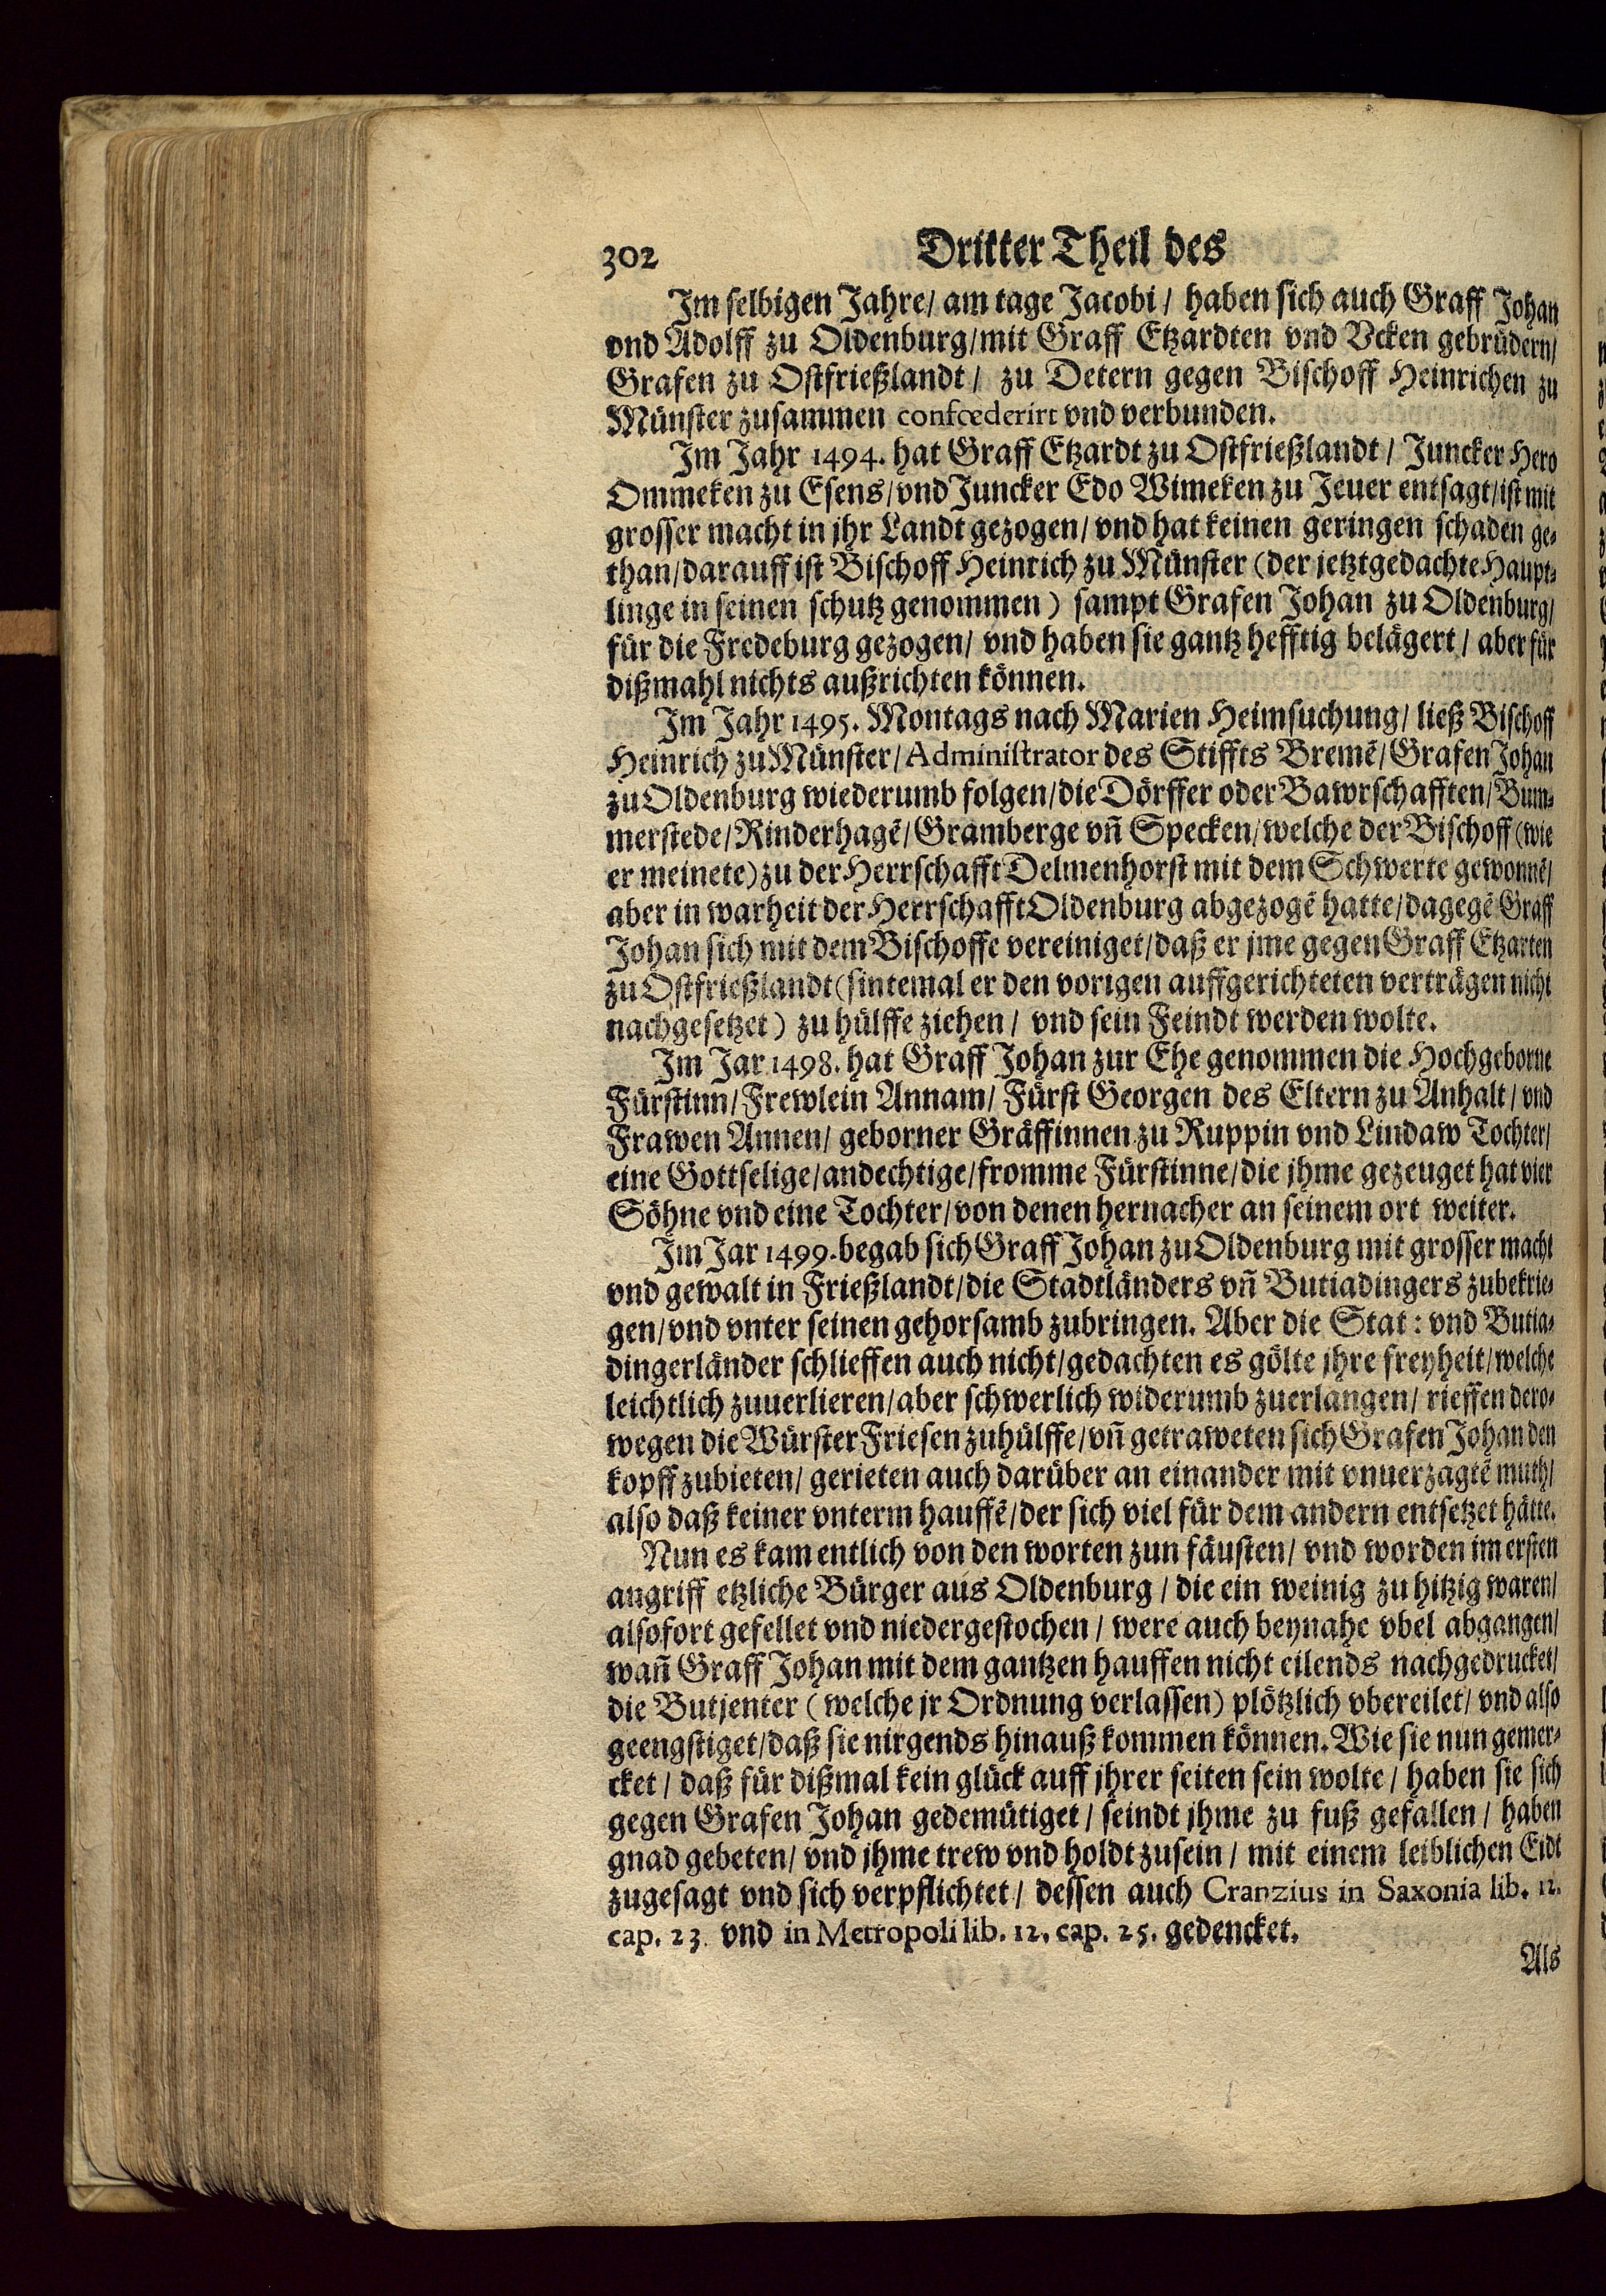 302 Dritter Theil des
Im selbigen Jahre/ am tage Jacobi/ haben sich auch Graff Johan
vnd Adolff zu Oldenburg/mit Graff Etzardten vnd Vcken gebrüdern/
Grafen zu Ostfrießlandt/ zu Detern gegen Bischoff Heinrichen zu
Münster zusammen confœderirt vnd verbunden.
Im Jahr 1494. hat Graff Etzardt zu Ostfrießlandt/ Juncker Hero
Ommeken zu Esens/vnd Juncker Edo Wimeken zu Jeuer entsagt/ist mit
grosser macht in jhr Landt gezogen/ vnd hat keinen geringen schaden ge-
than/darauff ist Bischoff Heinrich zu Münster (der jetztgedachte Haupt-
linge in seinen schutz genommen) sampt Grafen Johan zu Oldenburg/
für die Fredeburg gezogen/ vnd haben sie gantz hefftig belägert/ aber für
dißmahl nichts außrichten können.
Im Jahr 1495. Montags nach Marien Heimsuchung/ ließ Bischoff
Heinrich zu Münster/Administrator des Stiffts Bremẽ/Grafen Johan
zu Oldenburg wiederumb folgen/die Dörffer oder Bawrschafften/Bum-
merstede/Rinderhagẽ/Gramberge vñ Specken/welche der Bischoff (wie
er meinete) zu der Herrschafft Delmenhorst mit dem Schwerte gewonnẽ/
aber in warheit der Herrschafft Oldenburg abgezogẽ hatte/dagegẽ Graff
Johan sich mit dem Bischoffe vereiniget/daß er jme gegen Graff Etzarten
zu Ostfrießlandt (sintemal er den vorigen auffgerichteten verträgen nicht
nachgesetzet) zu hülffe ziehen/ vnd sein Feindt werden wolte.
Im Jar 1498. hat Graff Johan zur Ehe genommen die Hochgeborne
Fürstinn/Frewlein Annam/ Fürst Georgen des Eltern zu Anhalt/ vnd
Frawen Annen/ geborner Gräffinnen zu Ruppin vnd Lindaw Tochter/
eine Gottselige/andechtige/fromme Fürstinne/die jhme gezeuget hat vier
Söhne vnd eine Tochter/von denen hernacher an seinem ort weiter.
Im Jar 1499. begab sich Graff Johan zu Oldenburg mit grosser macht
vnd gewalt in Frießlandt/die Stadtländers vñ Butiadingers zubekrie-
gen/vnd vnter seinen gehorsamb zubringen. Aber die Stat: vnd Butia-
dingerländer schlieffen auch nicht/gedachten es gölte jhre freyheit/welche
leichtlich zuuerlieren/aber schwerlich widerumb zuerlangen/ rieffen dero-
wegen die Würster Friesen zuhülffe/vñ getraweten sich Grafen Johan den
kopff zubieten/ gerieten auch darüber an einander mit vnuerzagtẽ muth/
also daß keiner vnterm hauffẽ/der sich viel für dem andern entsetzet hätte.
Nun es kam entlich von den worten zun fäusten/ vnd worden im ersten
angriff etzliche Bürger aus Oldenburg/ die ein weinig zu hitzig waren/
alsofort gefellet vnd niedergestochen/ were auch beynahe vbel abgangen/
wañ Graff Johan mit dem gantzen hauffen nicht eilends nachgedrucket/
die Butjenter (welche jr Ordnung verlassen) plötzlich vbereilet/ vnd also
geengstiget/daß sie nirgends hinauß kommen können. Wie sie nun gemer-
cket/ daß für dißmal kein glück auff jhrer seiten sein wolte/ haben sie sich
gegen Grafen Johan gedemütiget/ seindt jhme zu fuß gefallen/ haben
gnad gebeten/ vnd jhme trew vnd holdt zusein/ mit einem leiblichen Eidt
zugesagt vnd sich verpflichtet/ dessen auch Cranzius in Saxonia lib. 12.
cap. 23. vnd in Metropoli lib. 12. cap. 25. gedencket.
Als